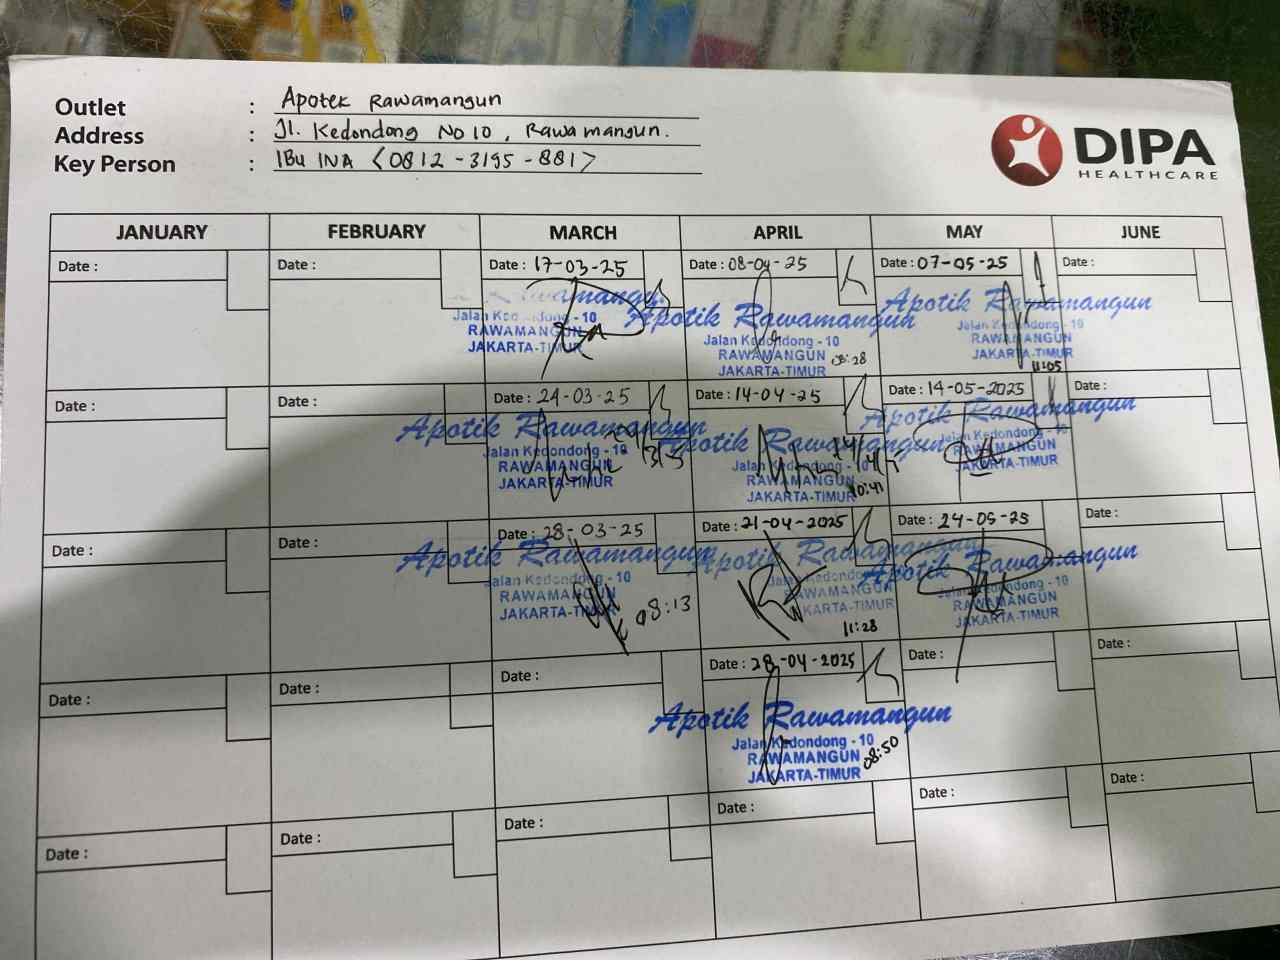 Outlet : Apotek Rawamangun
Address : Jl. Kedondong No 10, Rawamangun.
Key Person : IBu INA <0812-3195-881>
DIPA
HEALTHCARE
JANUARY FEBRUARY MARCH APRIL MAY JUNE
Date : Date : Date : 17-03-25 Date : 08-04-25 Date : 07-05-25 Date :
Rawamangun Apotik Rawamangun Apotik Rawamangun
Jalan Kedondong - 10 Jalan Kedondong - 10 Jalan Kedondong - 10
RAWAMANGUN RAWAMANGUN RAWAMANGUN
JAKARTA-TIMUR JAKARTA-TIMUR JAKARTA-TIMUR
08:28 11:05
Date : Date : Date : 24-03-25 Date : 14-04-25 Date : 14-05-2025 Date :
Apotik Rawamangun Apotik Rawamangun Apotik Rawamangun
Jalan Kedondong - 10 Jalan Kedondong - 10 Jalan Kedondong - 10
RAWAMANGUN RAWAMANGUN RAWAMANGUN
JAKARTA-TIMUR JAKARTA-TIMUR JAKARTA-TIMUR
10:41
Date : Date : Date : 28-03-25 Date : 21-04-2025 Date : 24-05-25 Date :
Apotik Rawamangun Apotik Rawamangun Apotik Rawamangun
Jalan Kedondong - 10 Jalan Kedondong - 10 Jalan Kedondong - 10
RAWAMANGUN RAWAMANGUN RAWAMANGUN
JAKARTA-TIMUR JAKARTA-TIMUR JAKARTA-TIMUR
08:13 11:28
Date : Date : Date : Date : 28-04-2025 Date : Date :
Apotik Rawamangun
Jalan Kedondong - 10
RAWAMANGUN
JAKARTA-TIMUR
08:50
Date : Date : Date : Date : Date : Date :